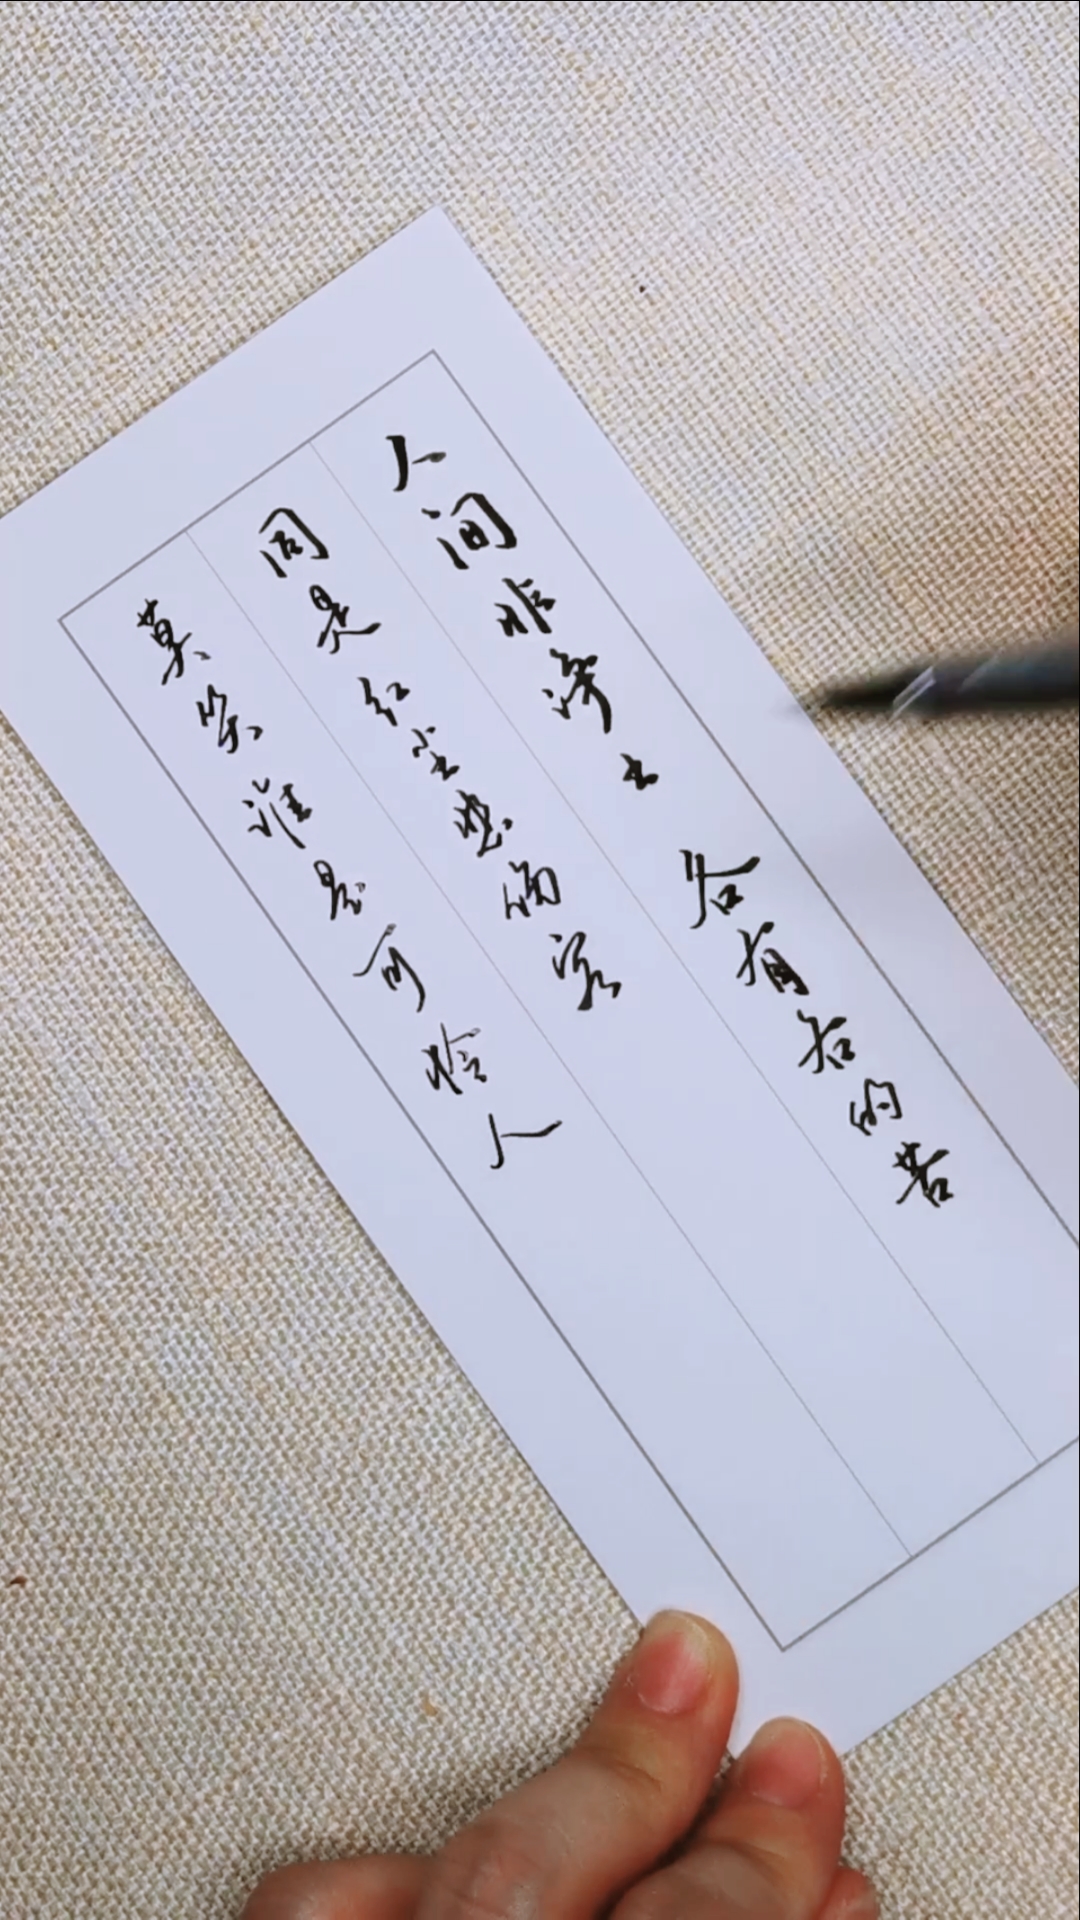 人间非净土 各有各的苦
同是红尘悲伤客
莫笑谁是可怜人